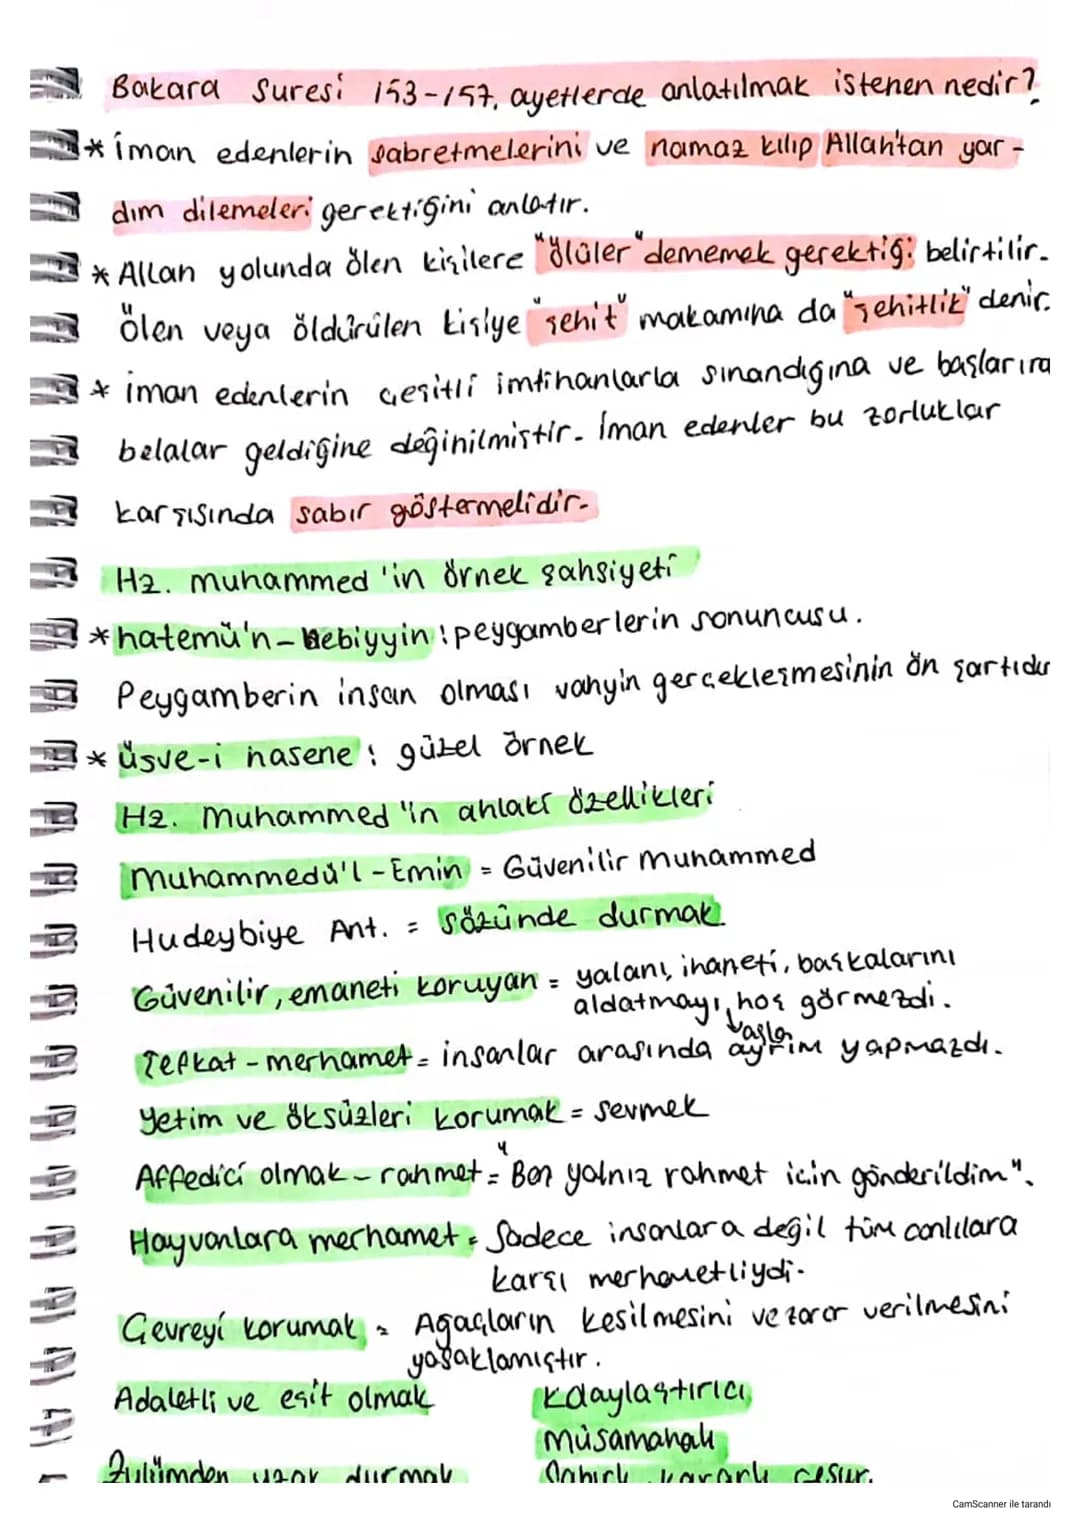 Bakara Suresi 153-157. ayetlerde anlatılmak istenen nedir?
* iman edenlerin sabretmelerini ve namaz kılıp Allah'tan yar-
dım dilemeleri gerektiğini anlatır.
* Allah yolunda ölen kişilere "ölüler" dememek gerektiği belirtilir.
Ölen veya öldürülen kişiye "şehit" makamına da "şehitlik" denir.
* iman edenlerin çeşitli imtihanlarla sınandığına ve başlarına
belalar geldiğine değinilmiştir. İman edenler bu zorluklar
karşısında sabır göstermelidir.
Hz. muhammed'in örnek şahsiyeti
* hatemü'n-Nebiyyin: peygamberlerin sonuncusu.
Peygamberin insan olması vahyin gerçekleşmesinin ön şartıdır
* üsve-i hasene: güzel örnek
Hz. Muhammed'in ahlakî özellikleri
Muhammedü'l-Emin = Güvenilir Muhammed
Hudeybiye Ant. = Sözünde durmak.
Güvenilir, emaneti koruyan = yalanı, ihaneti, başkalarını
aldatmayı, hoş görmezdi.
asla
Şefkat-merhamet = insanlar arasında ayrım yapmazdı.
Yetim ve öksüzleri korumak = sevmek
Affedici olmak-rahmet = "Ben yalnız rahmet için gönderildim".
Hayvanlara merhamet = Sadece insanlara değil tüm canlılara
karşı merhametliydi.
Çevreyi korumak = Ağaçların kesilmesini ve zarar verilmesini
yasaklamıştır.
Adaletli ve eşit olmak kolaylaştırıcı,
Müsamahalı
Zulümden uzak durmak Sabırlı, kararlı cesur.
CamScanner ile tarandı